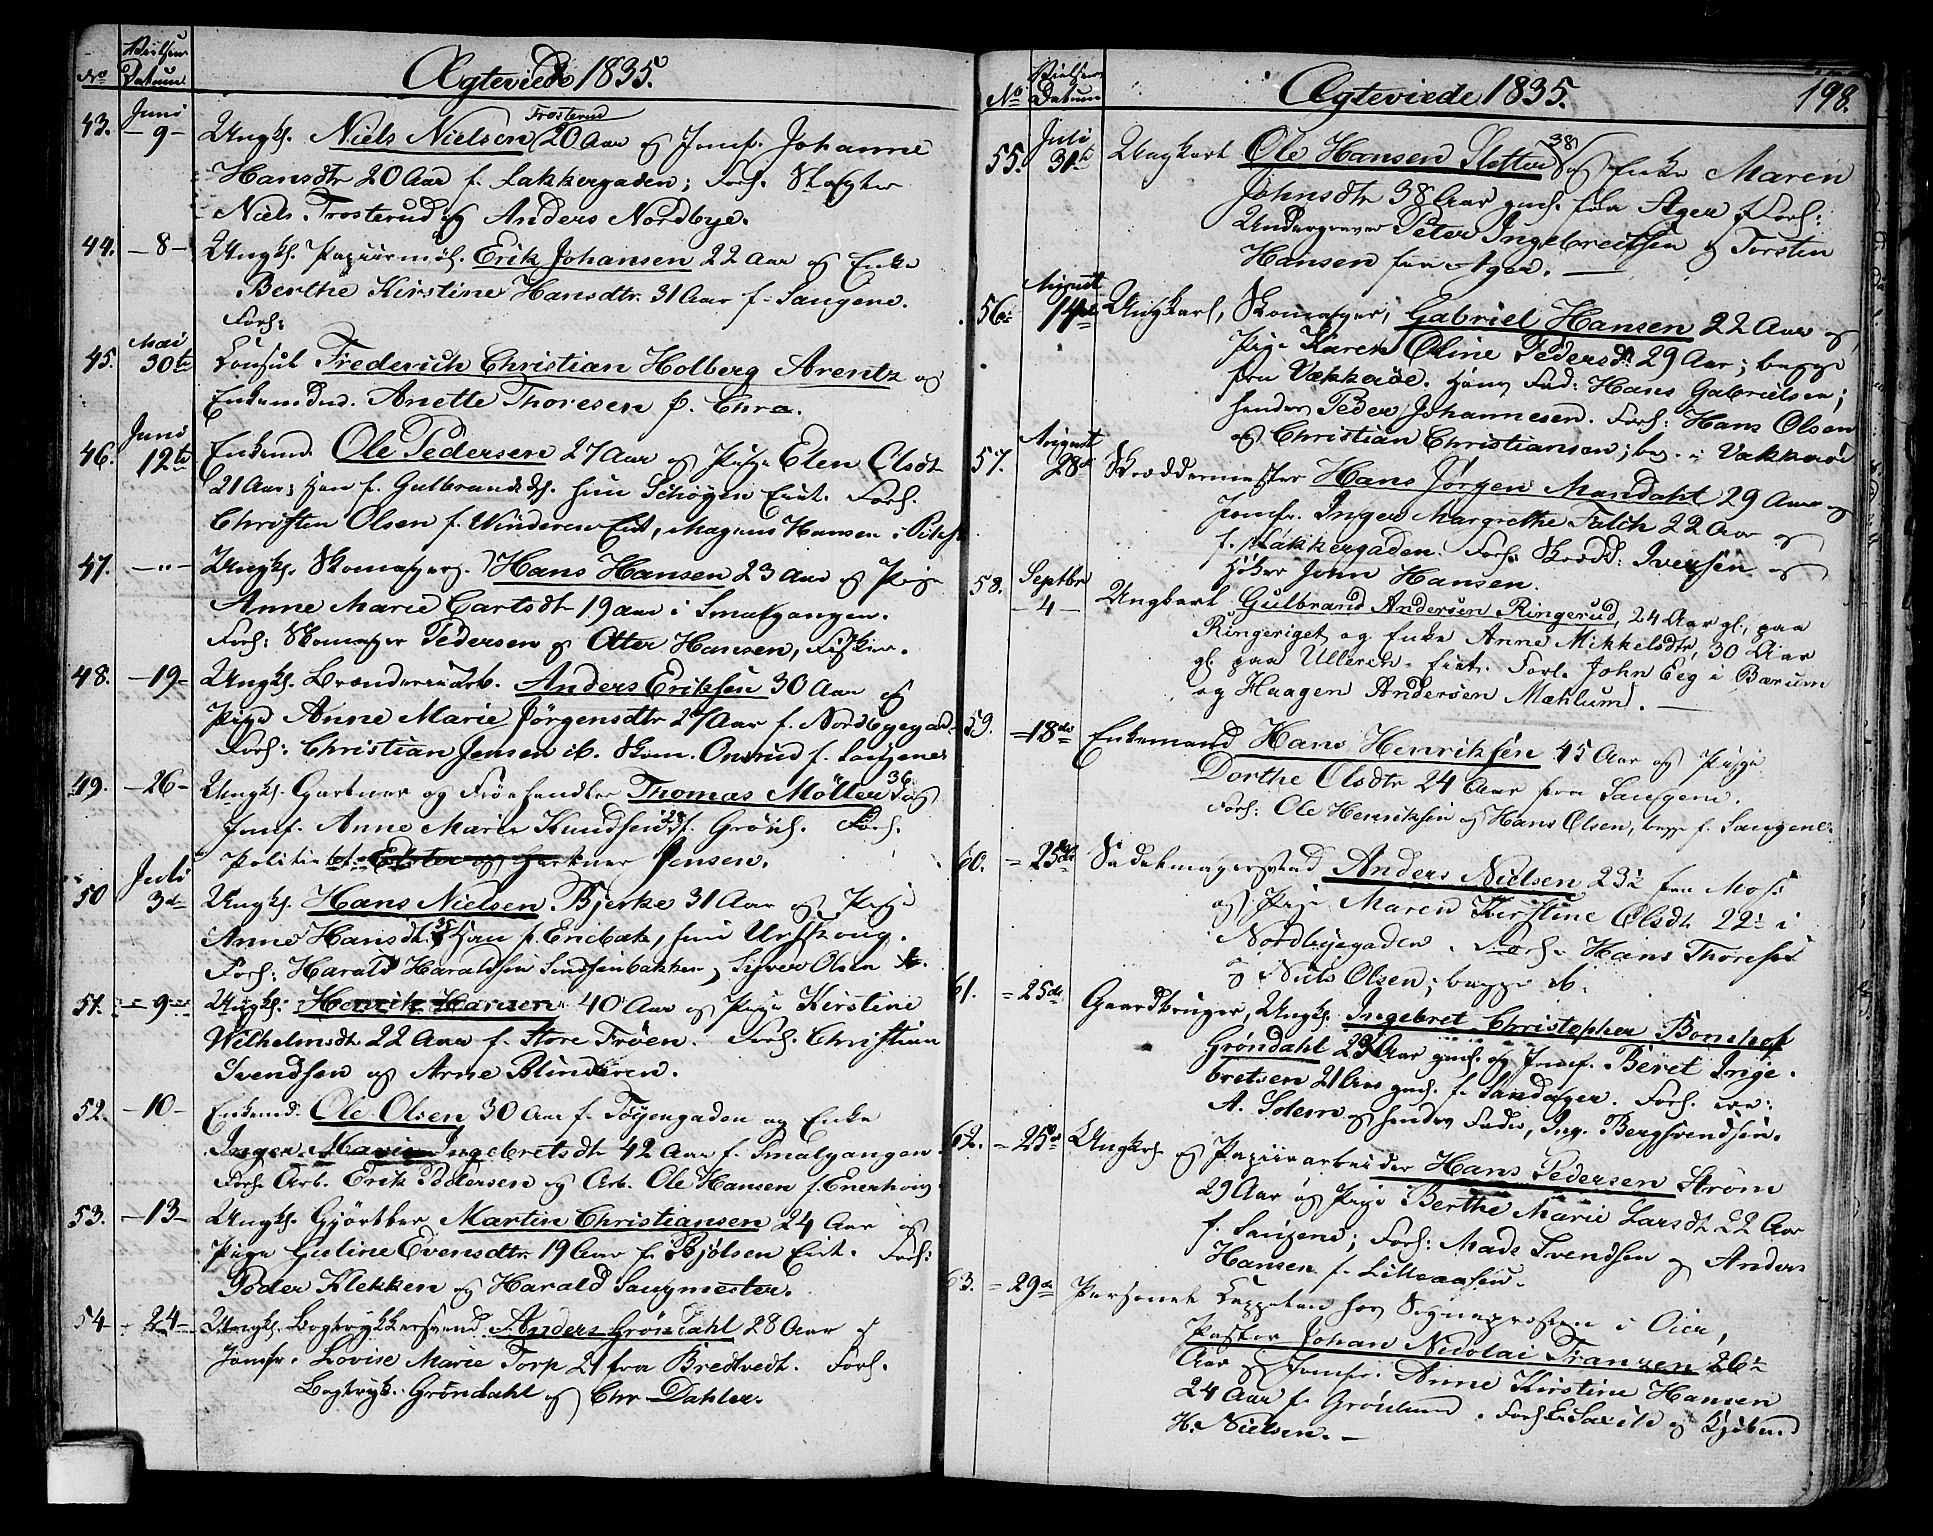 No Vielsens Datum Ægteviede 1835.
43. Juni 9 Ungk. Niels Nielsen Trosterud 20 Aar og Jomf. Johanne
Hansdtr 20 Aar f. Lakkergaden; Forl. Skafter
Niels Trosterud og Anders Nordbye.
44. 8 Ungk. Papiirmøl. Erik Johansen 22 Aar og Enke
Berthe Kirstine Hansdtr. 31 Aar f. Saugene.
Forl:
45. Mai 30te Consul Frederich Christian Holberg Arentz og
Enkemdm. Anette Thoresen f. Chra.
46. Juni 12te Enkemd. Ole Pedersen 27 Aar og Pige Elen Olsdt
21 Aar; han f. hun Schøyen Eiet. Forl.
Christen Olsen f. Winderen Eiet, Magnus Hansen i
47. -"- Ungk. Skomagers. Hans Hansen 23 Aar og Pige
Anne Marie Carlsdt 19 aar i Smalgangen.
Forl: Skomager Pedersen og Otter Hansen, Fisker.
48. 19 Ungk. Anders Eriksen 30 Aar og
Pige Anne Marie Jørgensdtr 27 Aar f. Nordbyegad.
Forl: Christian Jensen ib. Skom. Onsrud f. Saugene
49. 26 Ungk. Gartner og Frøehandler Thomas Møller 36 og
Jomf. Anne Marie Knudsen 28 f. Grønl. Forl.
Politiebet. Jensen.
50 Juli 3die Ungk. Hans Nielsen Bjerke 31 Aar og Pige
Anne Hansdt. 35 Han f. hun Urskoug.
Forl: Harald Haraldsen Sinsenbakken, Syver Olsen ib.
51. 9 Ungk: Henrik Hansen 40 Aar og Pige Kirstine
Wilhelmsdt 22 Aar f. Store Frøen. Forl. Christian
Svendsen og Arne Blinderen.
52. 10 Enkemd. Ole Olsen 30 Aar f. Tøyengaden og Enke
Inger Marie Ingebretsdt 42 Aar f. Smalgangen
Forl. Arb. Erik Pedersen og Arb. Ole Hansen f. Enerhoug
53. 13 Ungk. Gjørtler Martin Christiansen 24 Aar og
Pige Guline Evensdtr. 19 Aar f. Bjølsen Eiet. Forl:
Peder Klekken og Harald Saugmester.
54 24 Ungk. Bogtrykkersvend Anders Grøndahl 28 Aar og
Jomfr. Lovise Marie Torp 21 fra Bredtvedt. Forl.
Bogtryk. Grøndahl og Chr Dahler.
No Vielsens Datum Ægteviede 1835. 198.
55. Juli 31te Ungkarl Ole Hansen Slotten 38 og Enke Maren
Johnsdtr 38 Aar gml. fra Ager Forl:
Undergraver Peter Ingebreitsen og Torsten
Hansen fra Ager.
56. August 14de Ungkarl, Skomager, Gabriel Hansen 22 Aar og
Pige Karen Oline Pedersdt 29 Aar; begge
fra Vækkerøe. Hans Fad: Hans Gabrielsen;
hendes Peder Johannesen. Forl: Hans Olsen
og Christian Christiansen; beg. i Vækkerøe
57. August 28de Skræddermester Hans Jørgen Mandahl 29 Aar og
Jomfr. Inger Margrethe Falch 22 Aar
f. Lakkergaden. Forl: Skrædd: Iversen og
Høker John Hansen.
58. Septbr 4 Ungkarl Gulbrand Andersen Ringerud, 24 Aar gl. paa
Ringeriget og Enke Anne Mikkelsdtr, 30 Aar
gl. paa Ullern Eiet. Forl. John Eeg i Bærum
og Haagen Andersen Mæhlum.
59. 18de Enkemand Hans Henriksen 45 Aar og Pige
Dorthe Olsdtr 24 Aar fra Saugene.
Forl: Ole Henriksen og Hans Olsen, begge f. Saugene.
60. 25de Sadelmagersvend Anders Nielsen 23½ fra Moss
og Pige Maren Kirstine Olsdt 22½ i
Nordbyegaden. Forl. Hans Thoresen
og Niels Olsen; begge ib.
61. 25de Gaardbruger, Ungk. Ingebret Christopher Bomhof
Grøndahl 29 Aar gml. og Jomf. Beret Inge-
bretsen 21 Aar gml. f. Sandager. Forl.
A. Solem og hendes Fader, Ing. Bergsvendsen.
62. 25de Ungkarl og Papiirarbeider Hans Pedersen Strøm
29 Aar og Pige Berthe Marie Larsdt 22 Aar
f. Saugene; Forl: Mads Svendsen og Anders
Hansen f. Lilleaasen.
63. 29de Personel Cappelan hos Sognepræsten i Eier,
Pastor Johan Nicolai Franzen 26½
Aar og Jomfr. Anne Kirstine Hansen
24 Aar f. Grønlund. Forl: og
H. Nielsen.